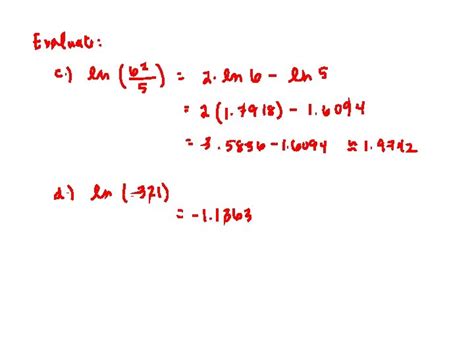 Evaluate:
c.) ln (6²/5) = 2·ln 6 - ln 5
= 2 (1.7918) - 1.6094
= 3.5836 - 1.6094 ≈ 1.9742
d.) ln (.321)
= -1.1363